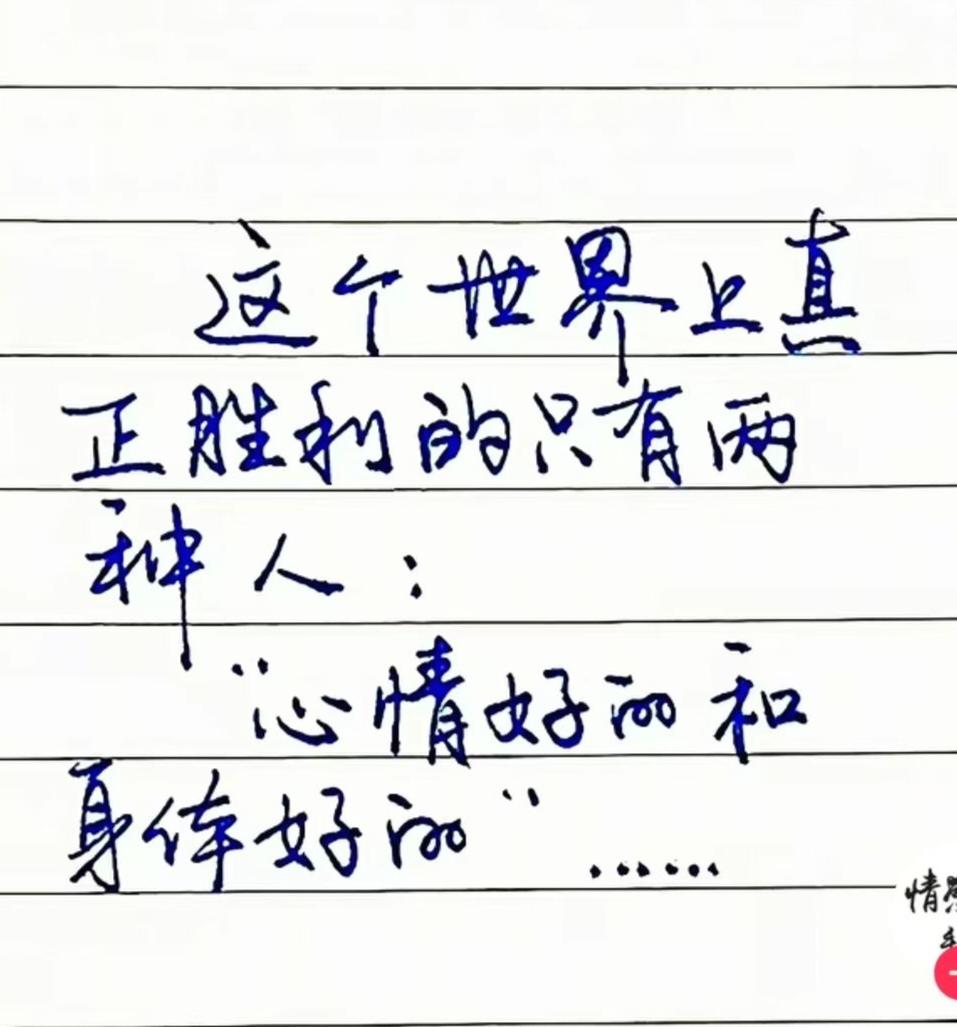 这个世界上真
正胜利的只有两
种人：
“心情好的和
身体好的”……
情感